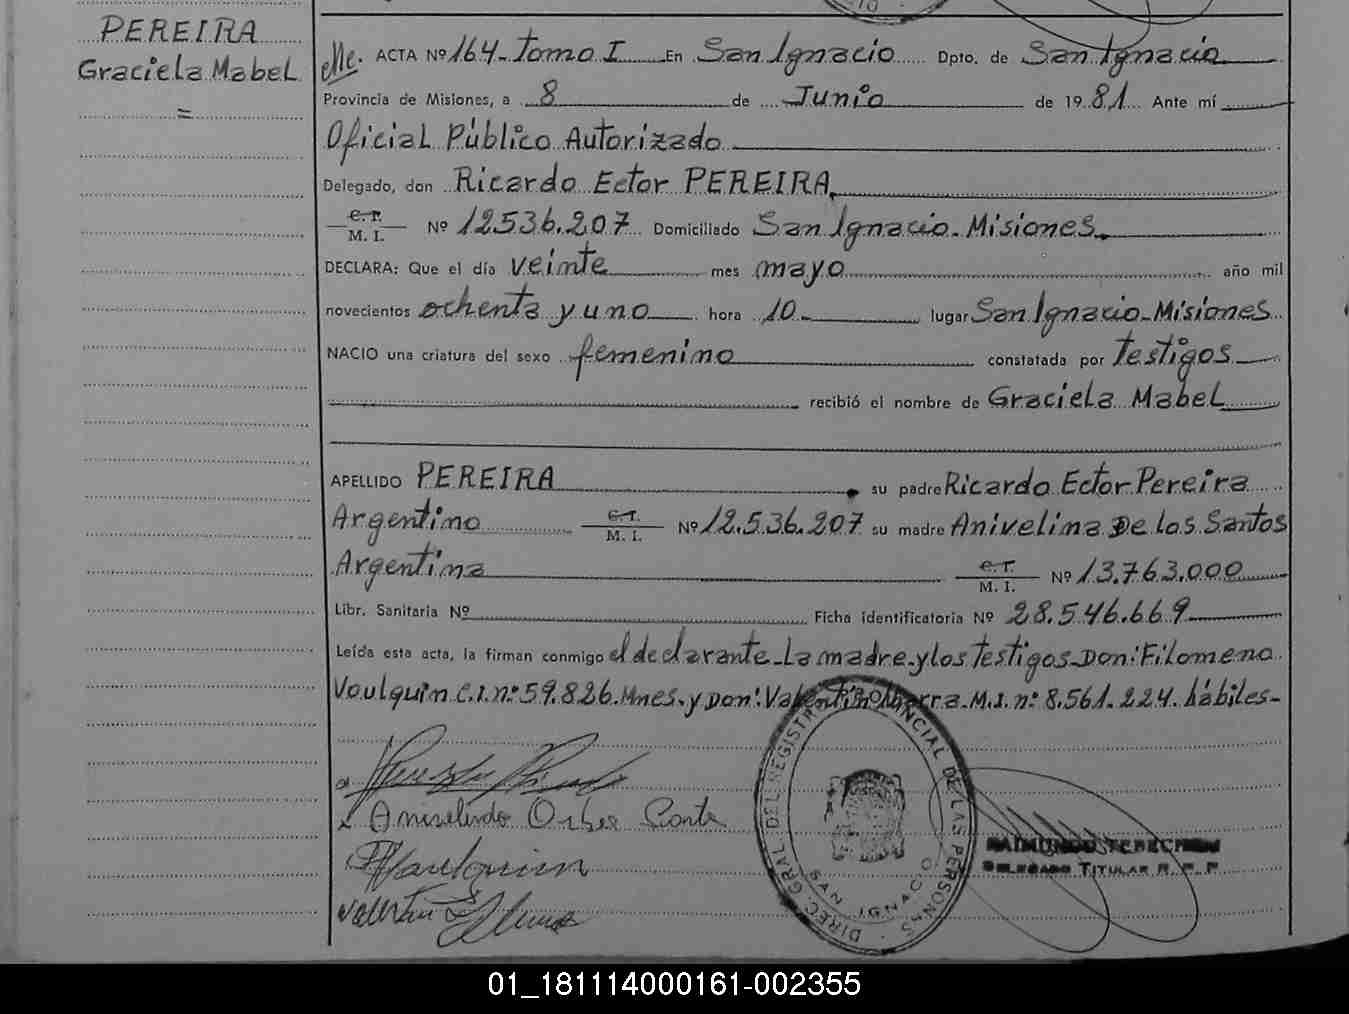 PEREIRA
Graciela Mabel
=
ACTA Nº 164-Tomo I En San Ignacio Dpto. de San Ignacio
Provincia de Misiones, a 8 de Junio de 1981 Ante mí
Oficial Público Autorizado
Delegado, don Ricardo Ector PEREIRA,
C.I. M. I. Nº 12.536.207 Domiciliado San Ignacio-Misiones.
DECLARA: Que el día veinte mes mayo año mil
novecientos ochenta y uno hora 10 lugar San Ignacio-Misiones
NACIO una criatura del sexo femenino constatada por testigos
recibió el nombre de Graciela Mabel
APELLIDO PEREIRA su padre Ricardo Ector Pereira
Argentino C.I. M. I. Nº 12.536.207 su madre Anivelina De los Santos
Argentina C.I. M. I. Nº 13.763.000
Libr. Sanitaria Nº Ficha identificatoria Nº 28.546.669
Leída esta acta, la firman conmigo el declarante-La madre-y los testigos-Don: Filomeno
Voulquin C.I. n: 59.826. Mnes. y Don: Valentín M.I. n: 8.561.224. hábiles-
DIREC. GRAL. DEL REGISTRO PROVINCIAL DE LAS PERSONAS
SAN IGNACIO
RAIMUNDO
DELEGADO TITULAR R. P. P.
Voulquin
Valentin
01_181114000161-002355